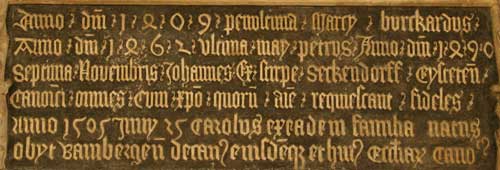 Anno · dm̄ · 1 · 4 · 0 · 9 · penultima · Marcy · burckardus ·
Anno · dm̄ · 1 · 4 · 6 · 2 · vltima · may · petrus · Anno · dm̄ · 1 · 4 · 9 · 0
Septima · Novembris · Johannes · Ex · stirpe · Seckendorff · Eysteten̄ ·
Canoīci · omnes · Cum · xp̄o · quorū · aīe · requiescant · fideles ·
Anno 1505 Juny 25 Carolus ex eadem familia natus
obyt Bambergen̄ decan⁹ eiusdeq₃ et hui⁹ Eccliaꝝ Cano⁹